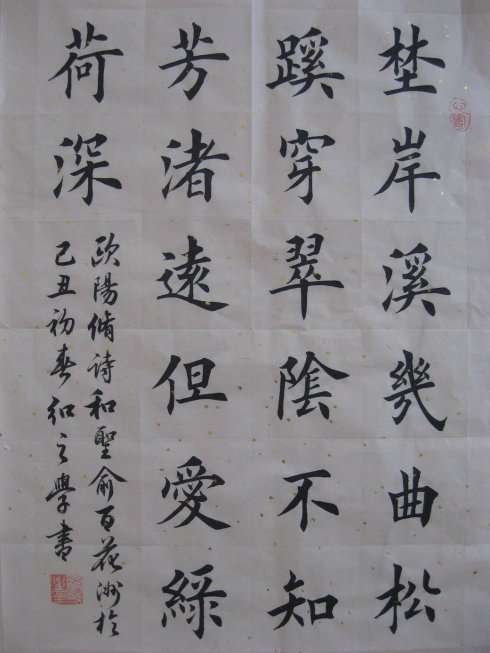 埜岸溪幾曲松
蹊穿翠陰不知
芳渚遠但愛綠
荷深
歐陽脩诗和聖俞百花洲於
己丑初春之學書